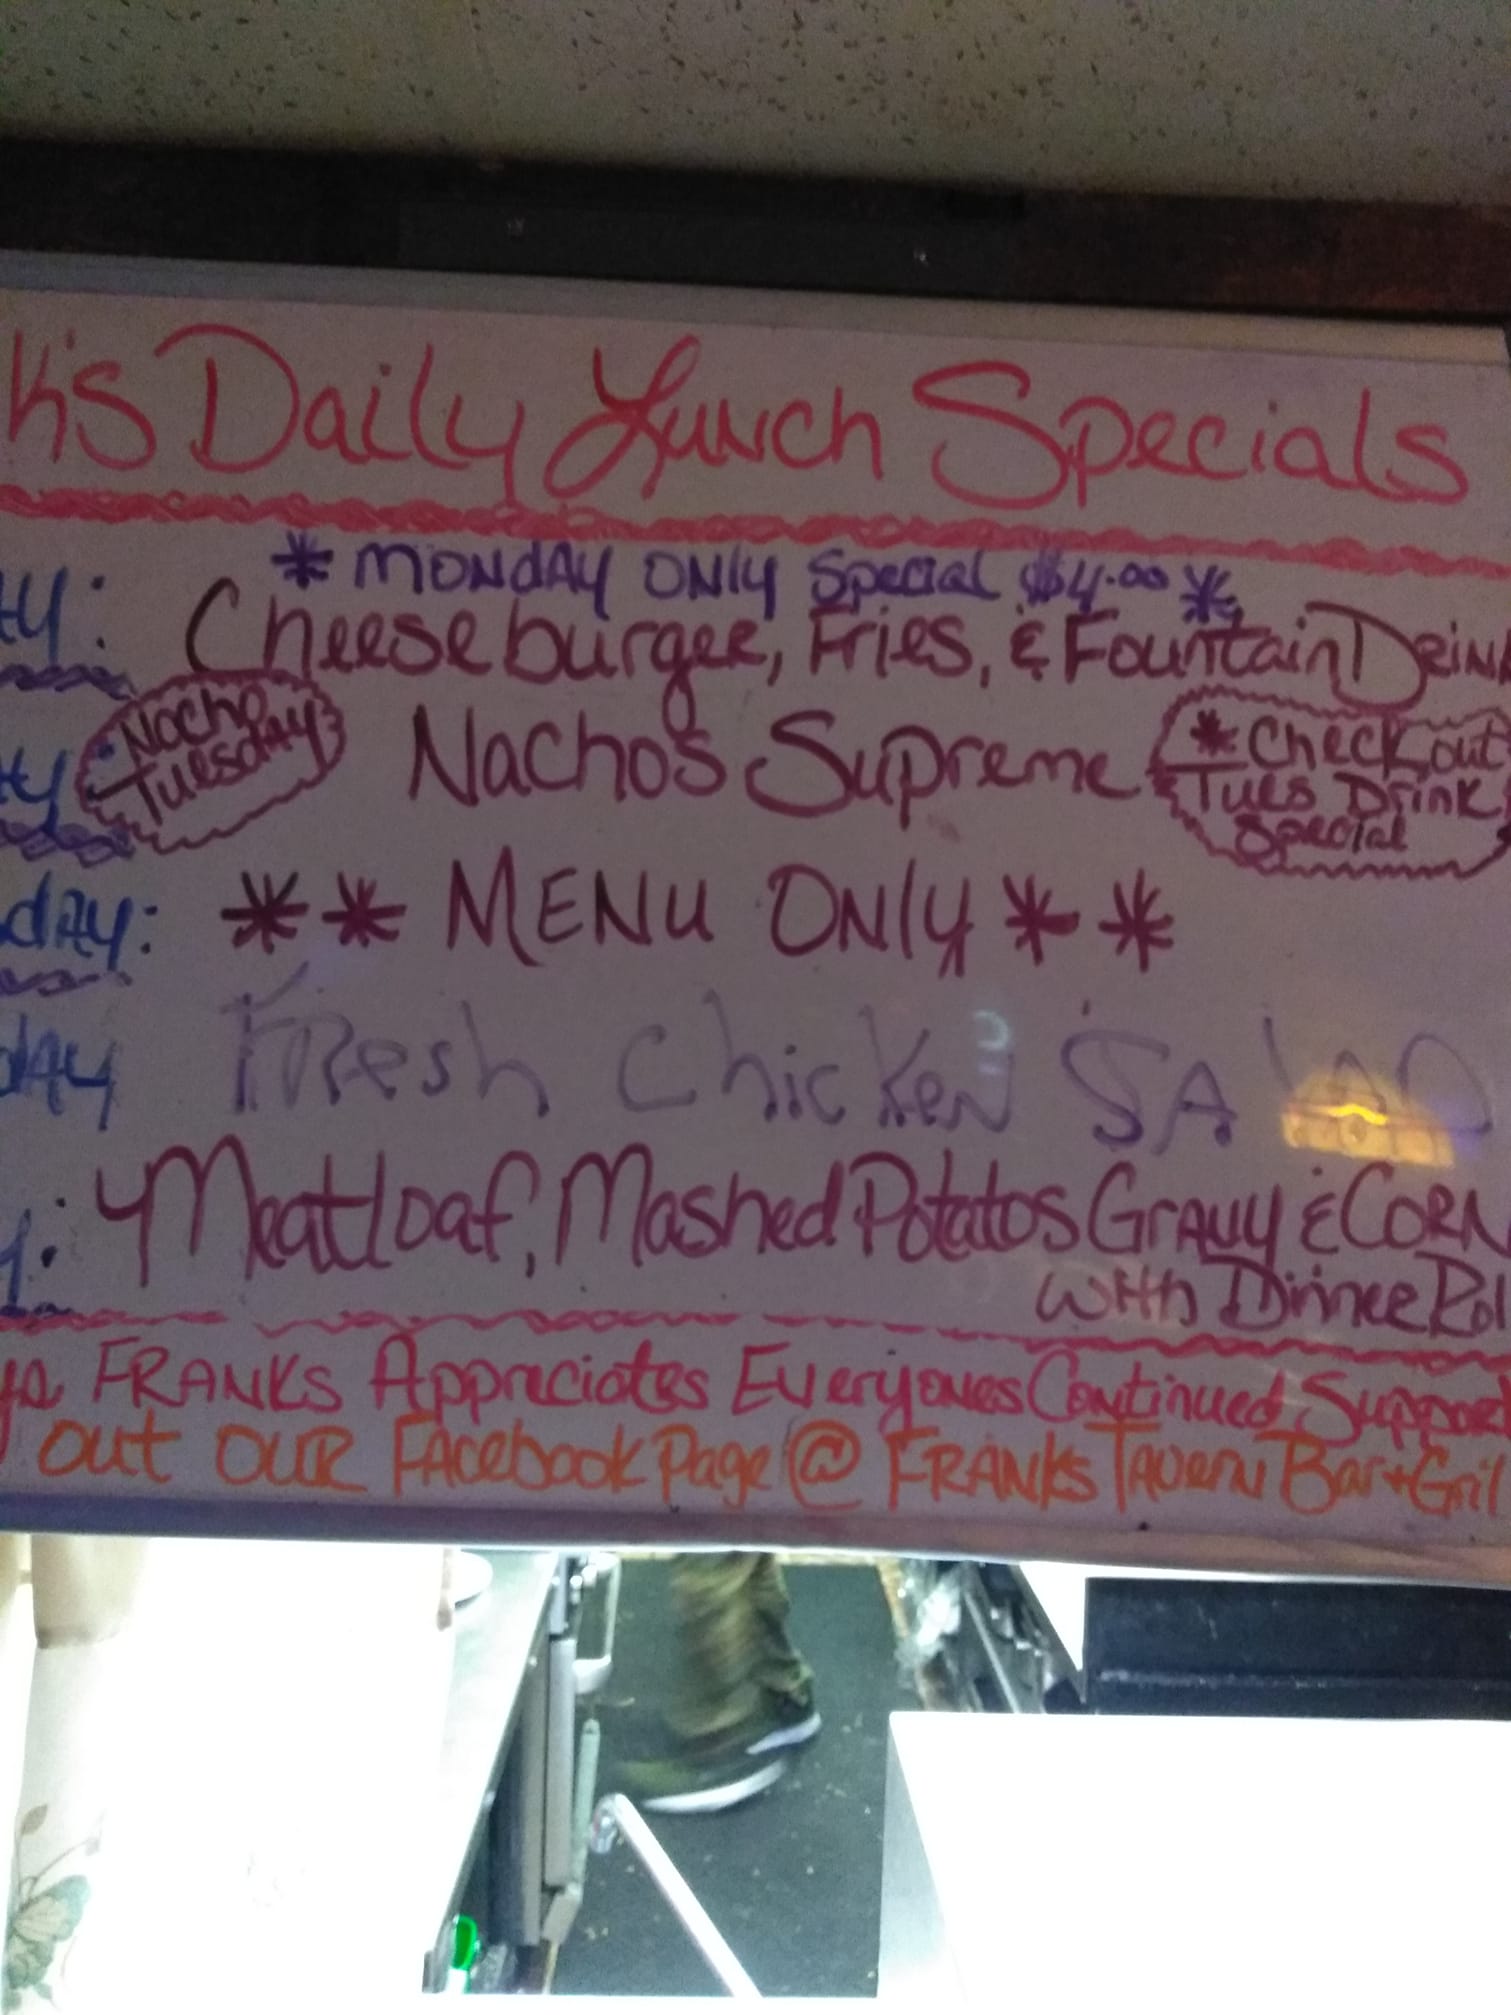 k's Daily Lunch Specials
* MONDAY ONLY Special $4.00 *
ay: Cheeseburger, Fries, & Fountain Drink
Nacho
Tuesday
ay Nacho's Supreme
* Check out
Tues Drink
Special
day: ** MENU ONLY **
day Fresh Chicken SAlAD
y: Meatloaf, Mashed Potatos Gravy & CORN
with Dinner Rol
FRANKS Appreciates Everyones Continued Support
out OUR Facebook Page @ FRANKS Tavern Bar + Gril